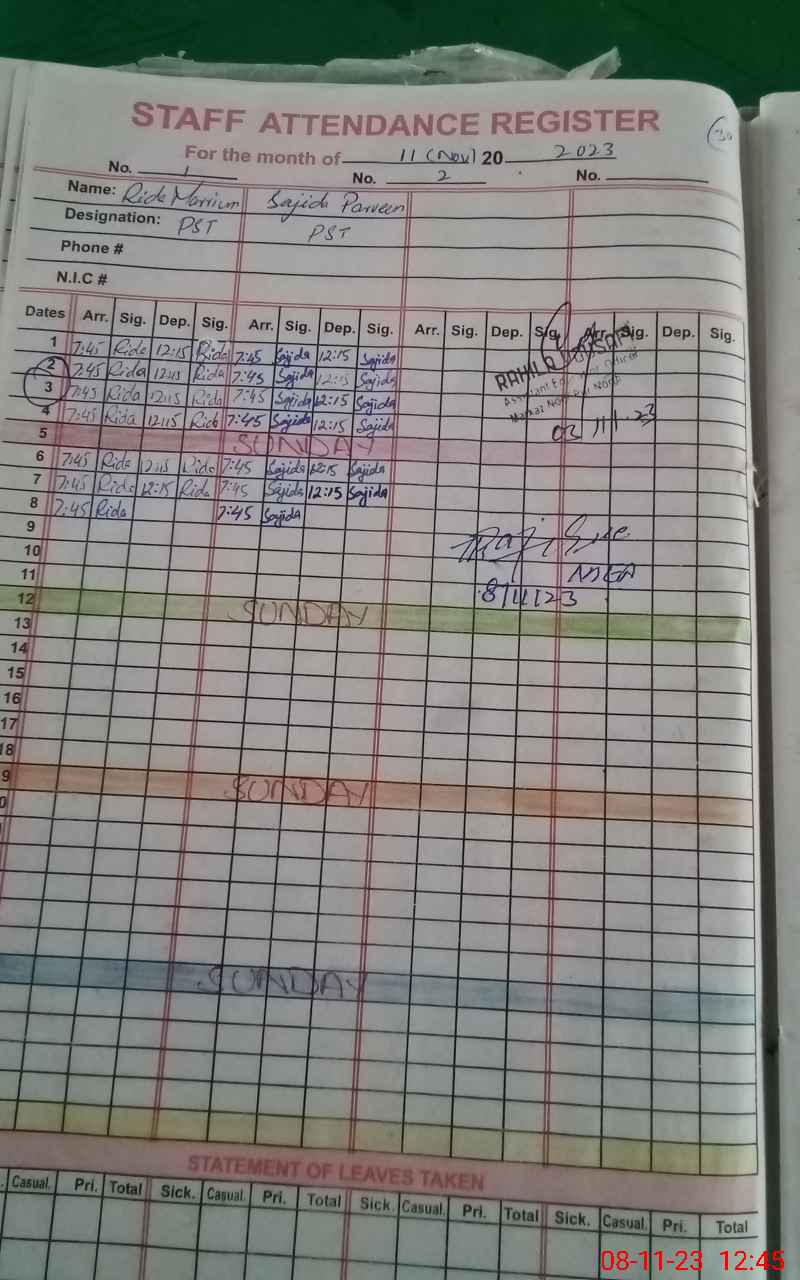 STAFF ATTENDANCE REGISTER
For the month of 11 (Nov) 20 2023
No. 1 No. 2 No.
Name: Rida Marrium Sajida Parveen
Designation: PST PST
Phone #
N.I.C #
Dates Arr. Sig. Dep. Sig. Arr. Sig. Dep. Sig. Arr. Sig. Dep. Sig. Arr. Sig. Dep. Sig.
1 7:45 Rida 12:15 Rida 7:45 Sajida 12:15 Sajida
2 7:45 Rida 12:15 Rida 7:45 Sajida 12:15 Sajida
3 7:45 Rida 12:15 Rida 7:45 Sajida 12:15 Sajida
4 7:45 Rida 12:15 Rida 7:45 Sajida 12:15 Sajida
RAHILA
Assistant Education Officer
Markaz
03/11/23
5 SUNDAY
6 7:45 Rida 12:15 Rida 7:45 Sajida 12:15 Sajida
7 7:45 Rida 12:15 Rida 7:45 Sajida 12:15 Sajida
8 7:45 Rida 7:45 Sajida
9
10
11
8/11/23
12 SUNDAY
13
14
15
16
17
18
9 SUNDAY
0
SUNDAY
STATEMENT OF LEAVES TAKEN
Casual. Pri. Total Sick. Casual. Pri. Total Sick. Casual. Pri. Total Sick. Casual. Pri. Total
08-11-23 12:45